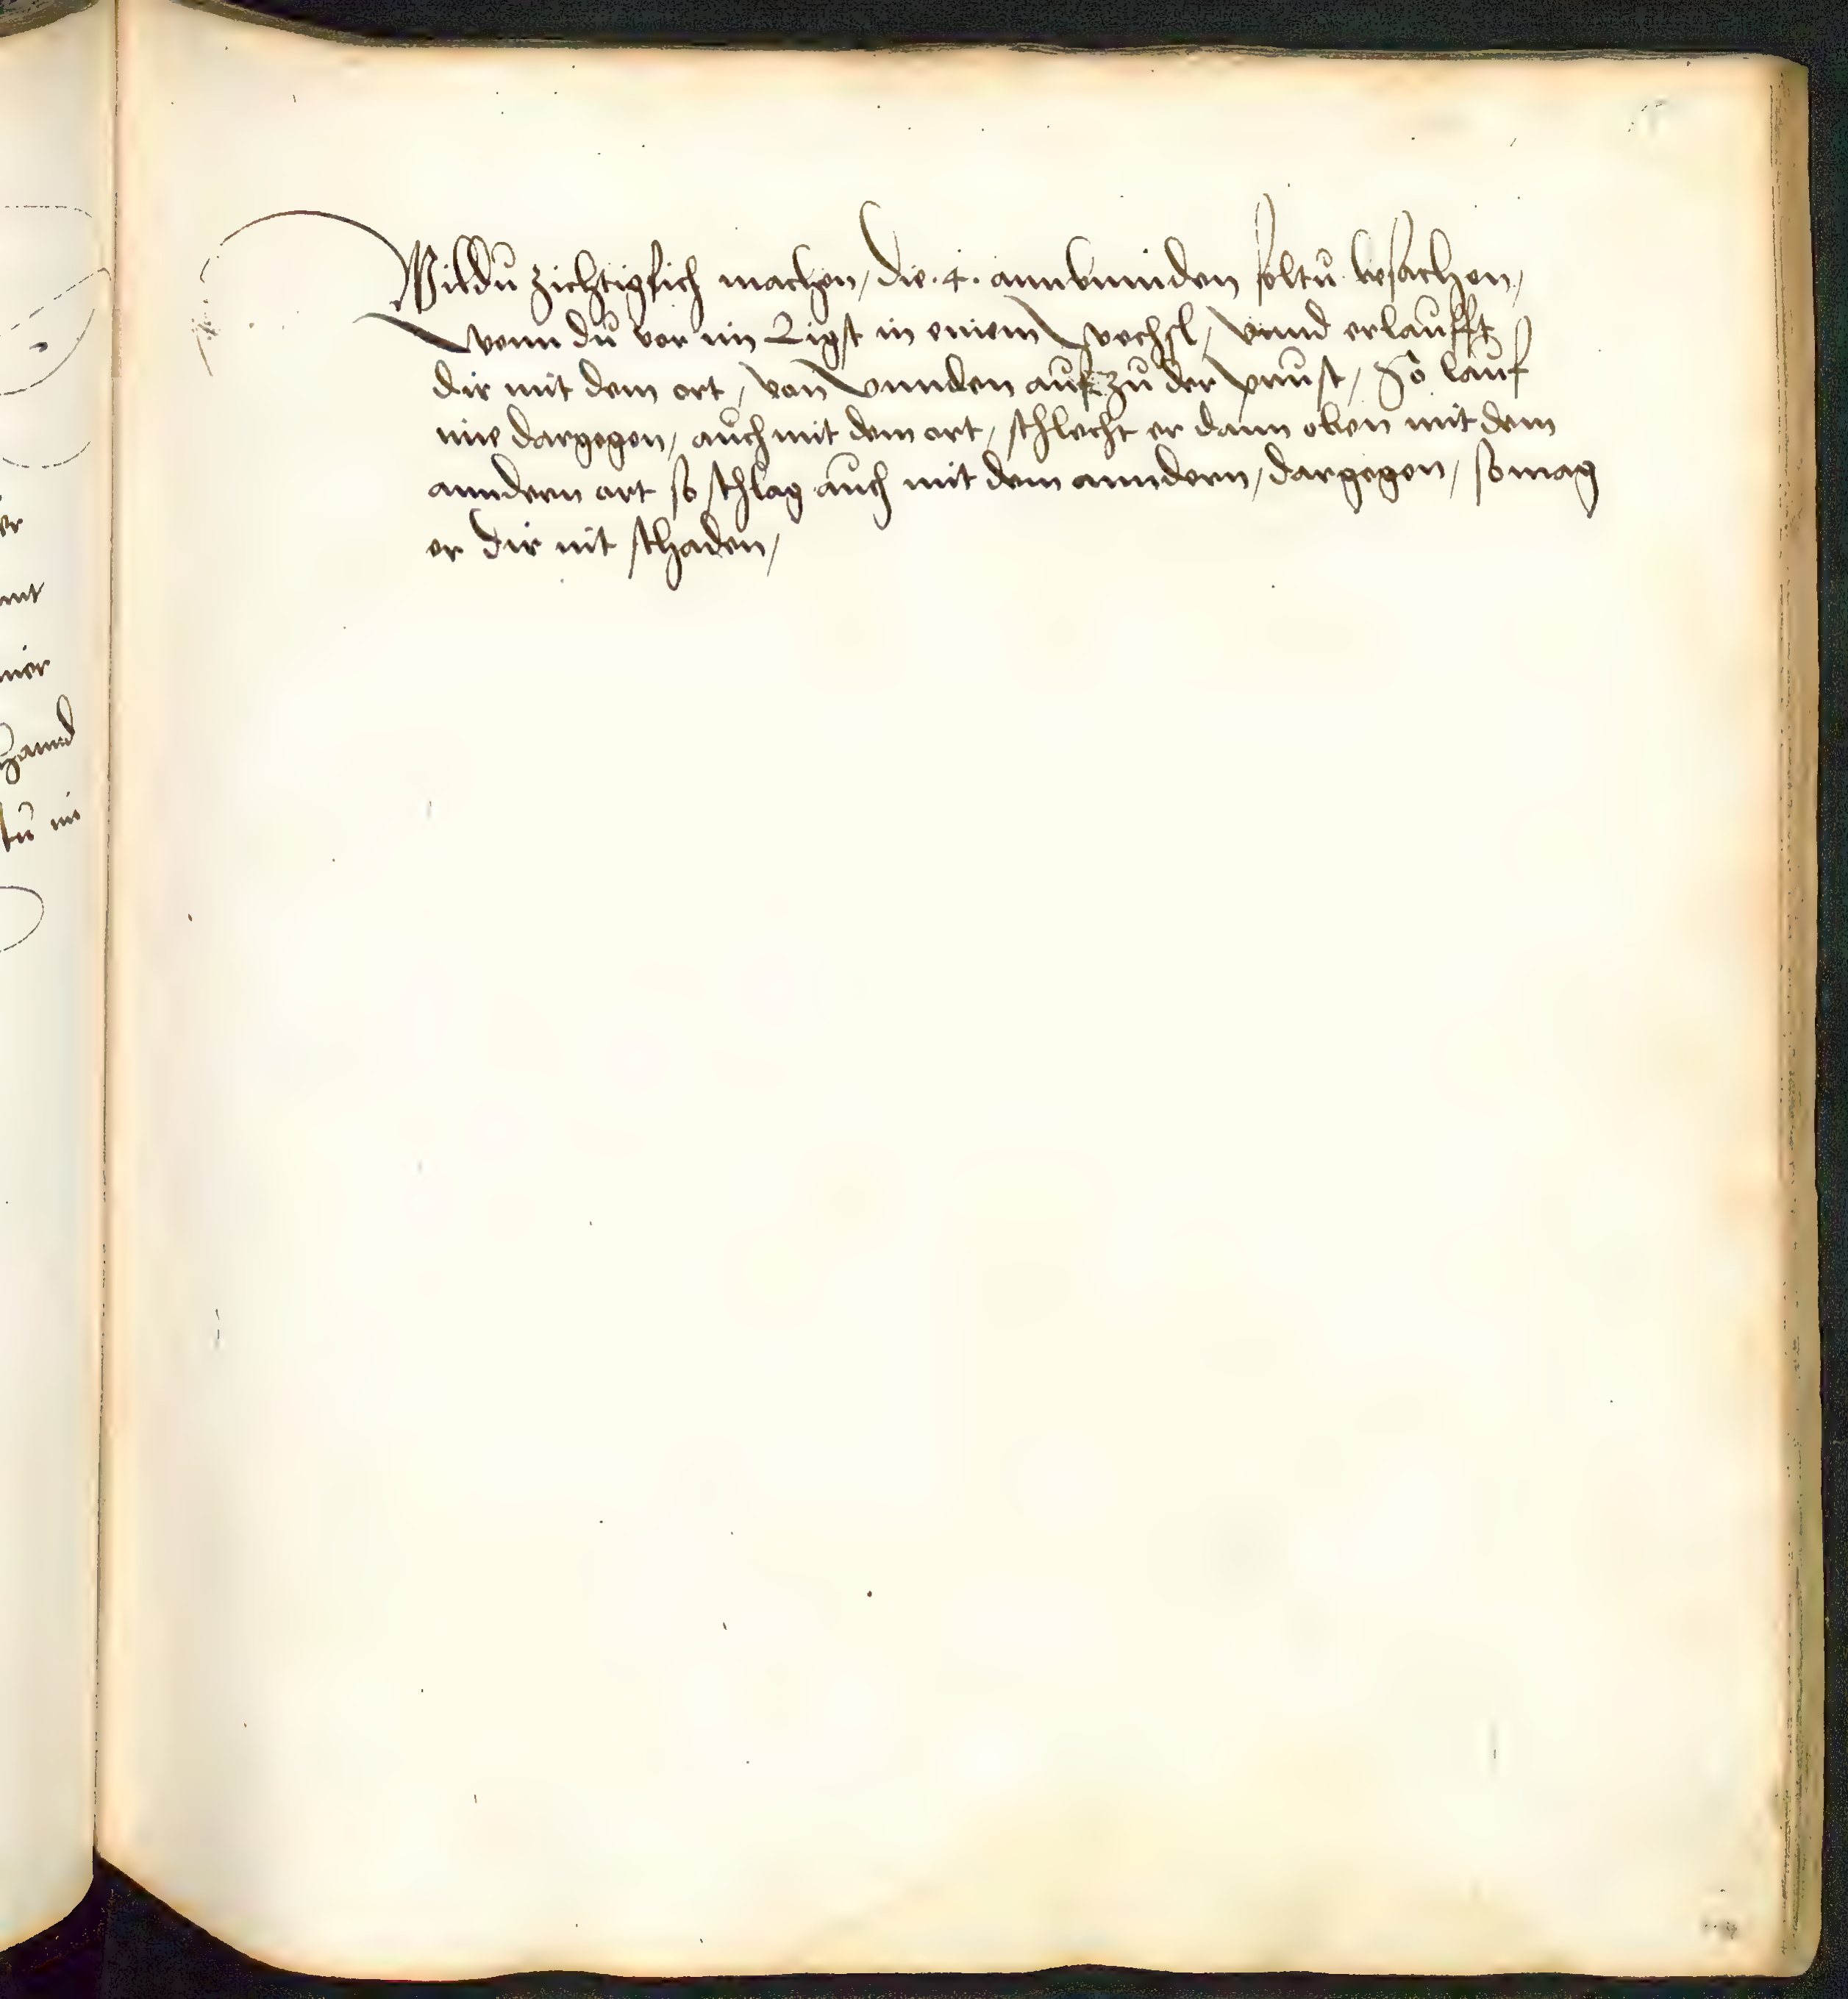 er
mit
mer
hannd
tu im
Wildu zichtigklich machen / die .4. annbinnden soltu besachen /
Wenn du vor im Ligst in einem wechsl / Vnnd er laufft
dir mit dem ort / von Vnnden auf zu der prust / So lauf
ime dargegen / auch mit dem ort / schlecht er dann oben mit dem
anndern ort so schlag auch mit dem anndern / dargegen / so mag
er dir nit schaden /